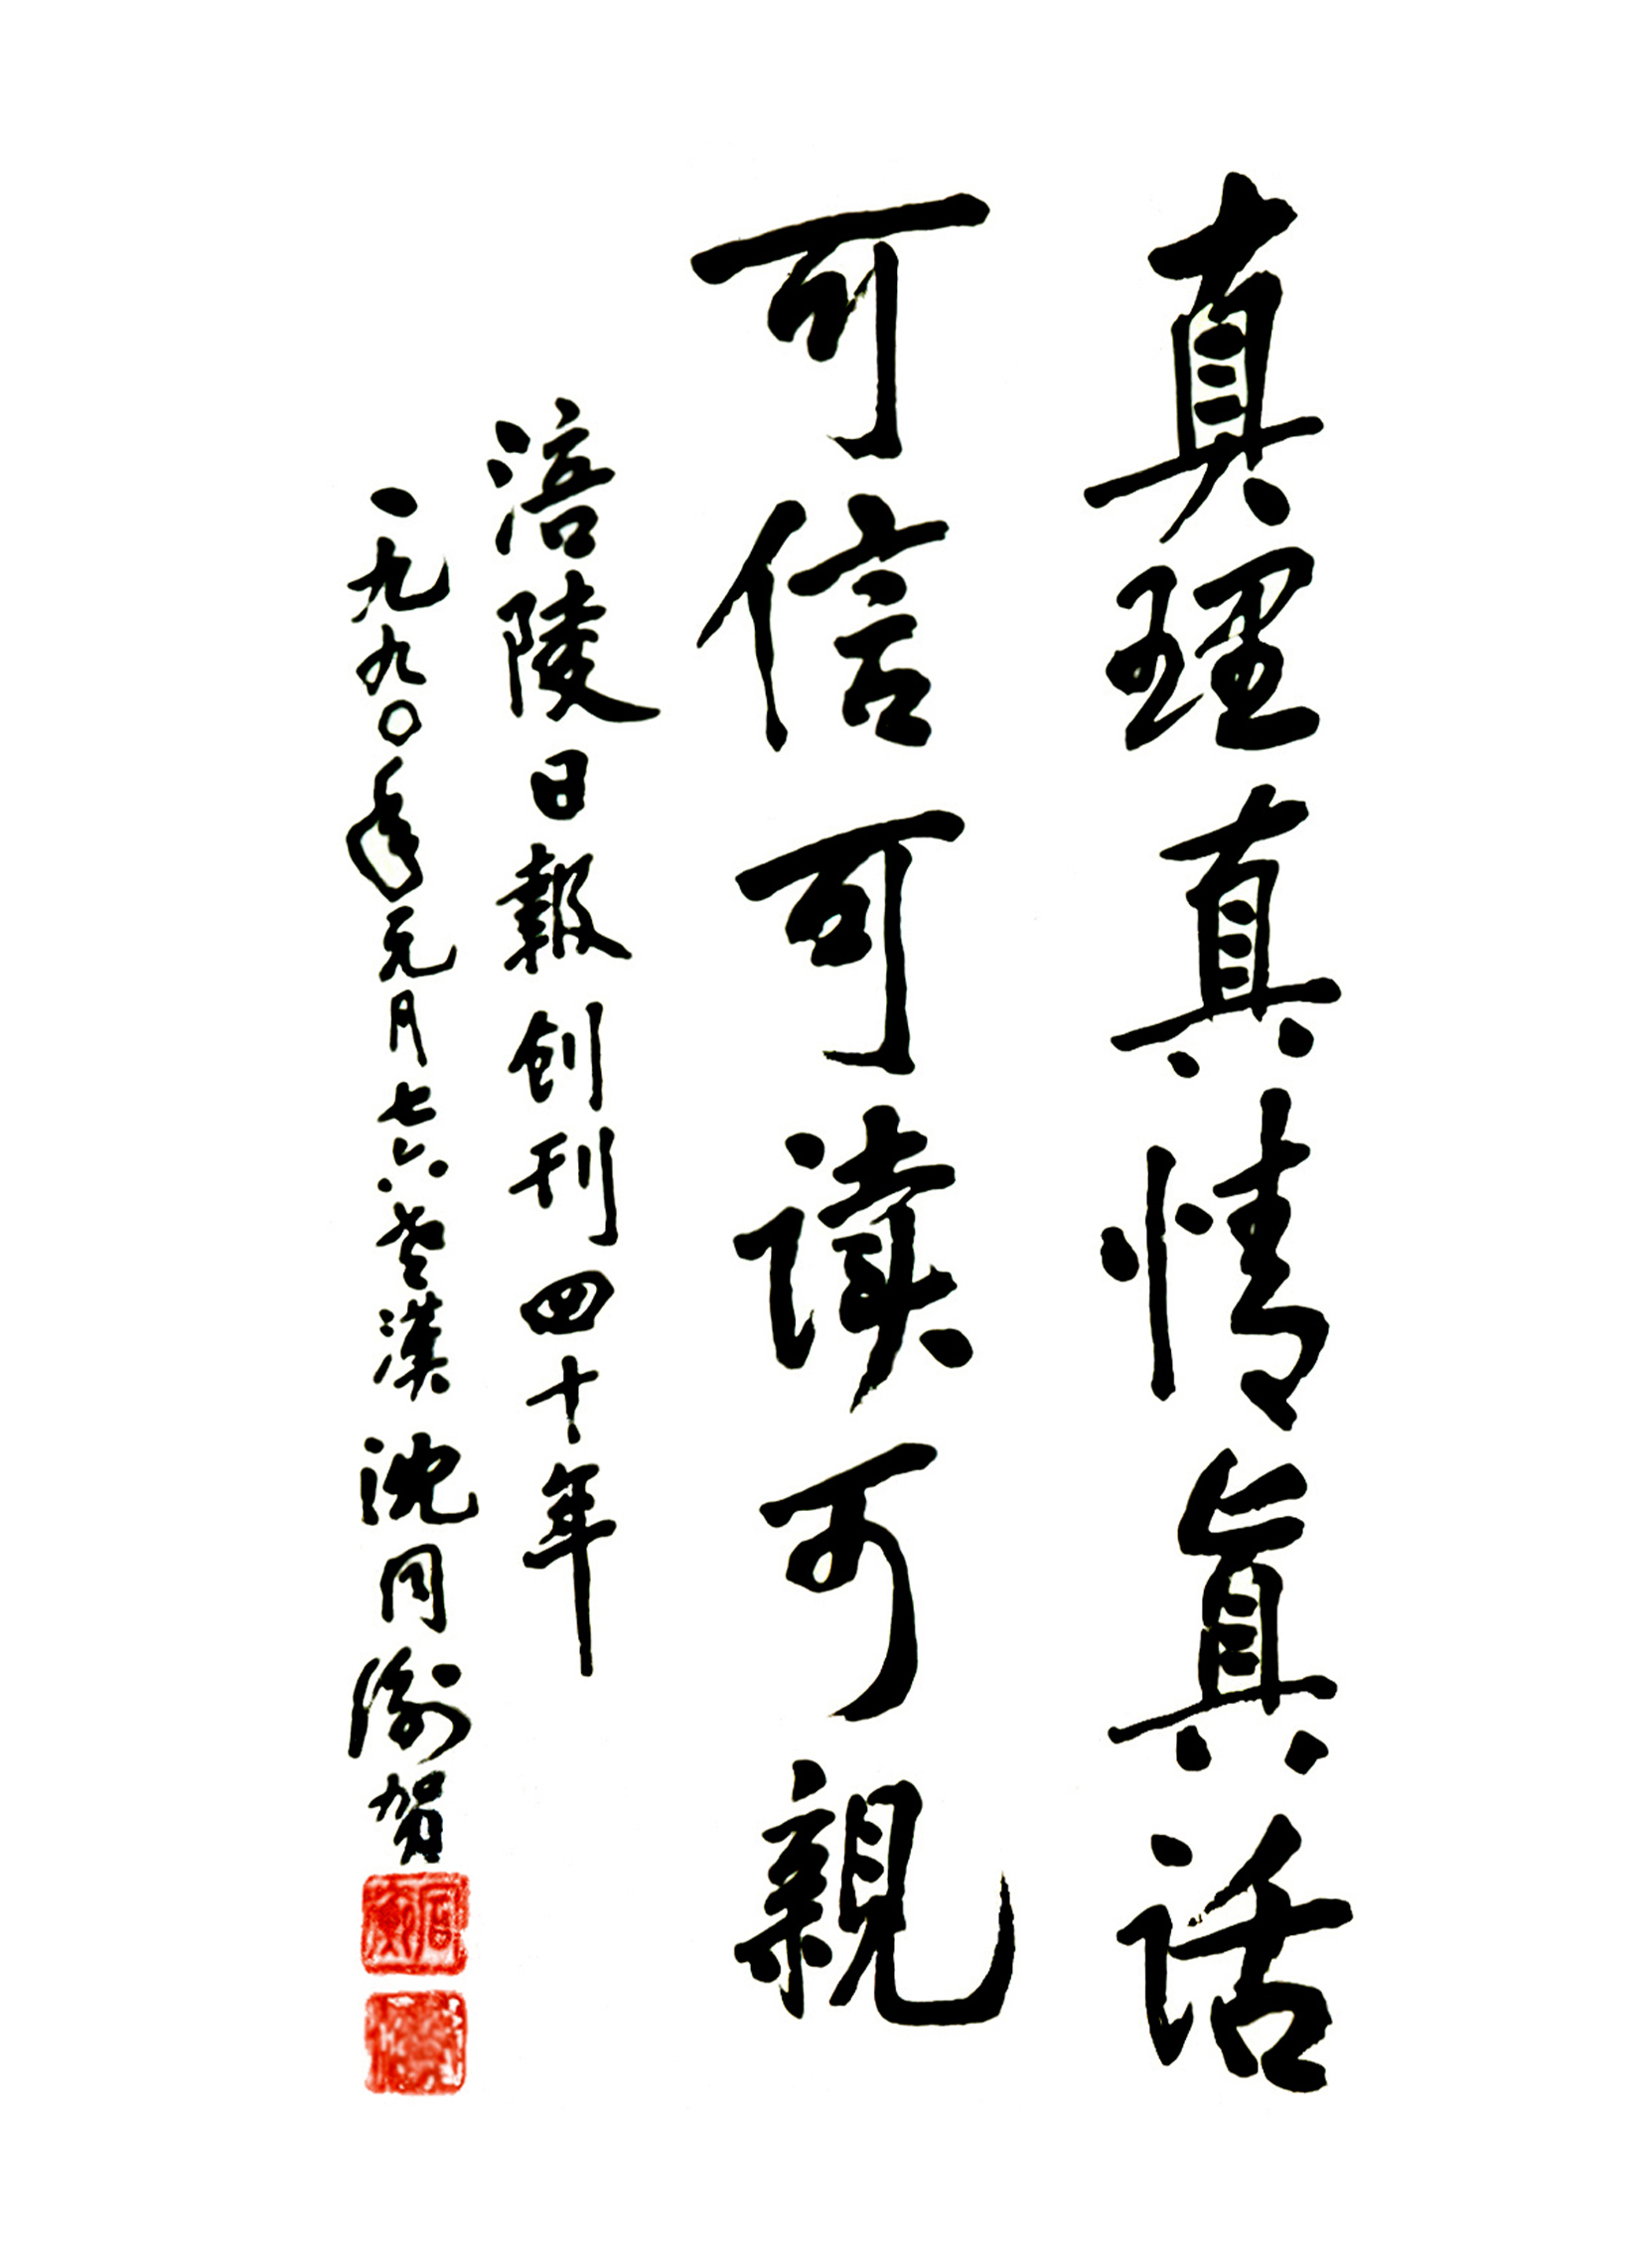 真理真情真话
可信可读可親
涪陵日報创刊四十年
一九九〇年元月七六老漢沈同衡賀